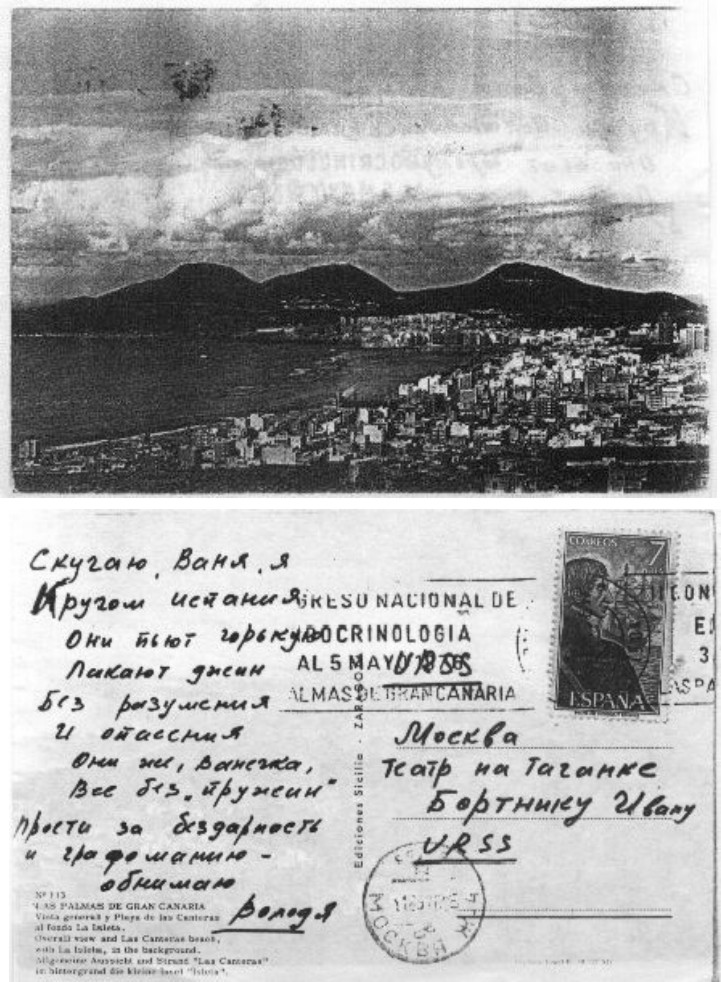 Скучаю, Ваня, я
Кругом Испания
Они пьют горькую
Лакают джин
Без разумения
И опасения
Они же, Ванечка,
Все без „пружин"
Прости за бездарность
и графоманию -
обнимаю
Володя
Nº 113
LAS PALMAS DE GRAN CANARIA
Vista general y Playa de las Canteras
al fondo La Isleta.
Overall view and Las Canteras beach,
with La Isleta, in the background.
Allgemeine Aussicht und Strand "Las Canteras"
im hintergrund die kleine Insel "Isleta".
Ediciones Sicilia - ZARAGO
GRESO NACIONAL DE
DOCRINOLOGIA
AL 5 MAYO 1976
ALMAS DE GRAN CANARIA
URSS
CORREOS 7
ESPAÑA
Москва
Театр на Таганке
Бортнику Ивану
URSS
МОСКВА